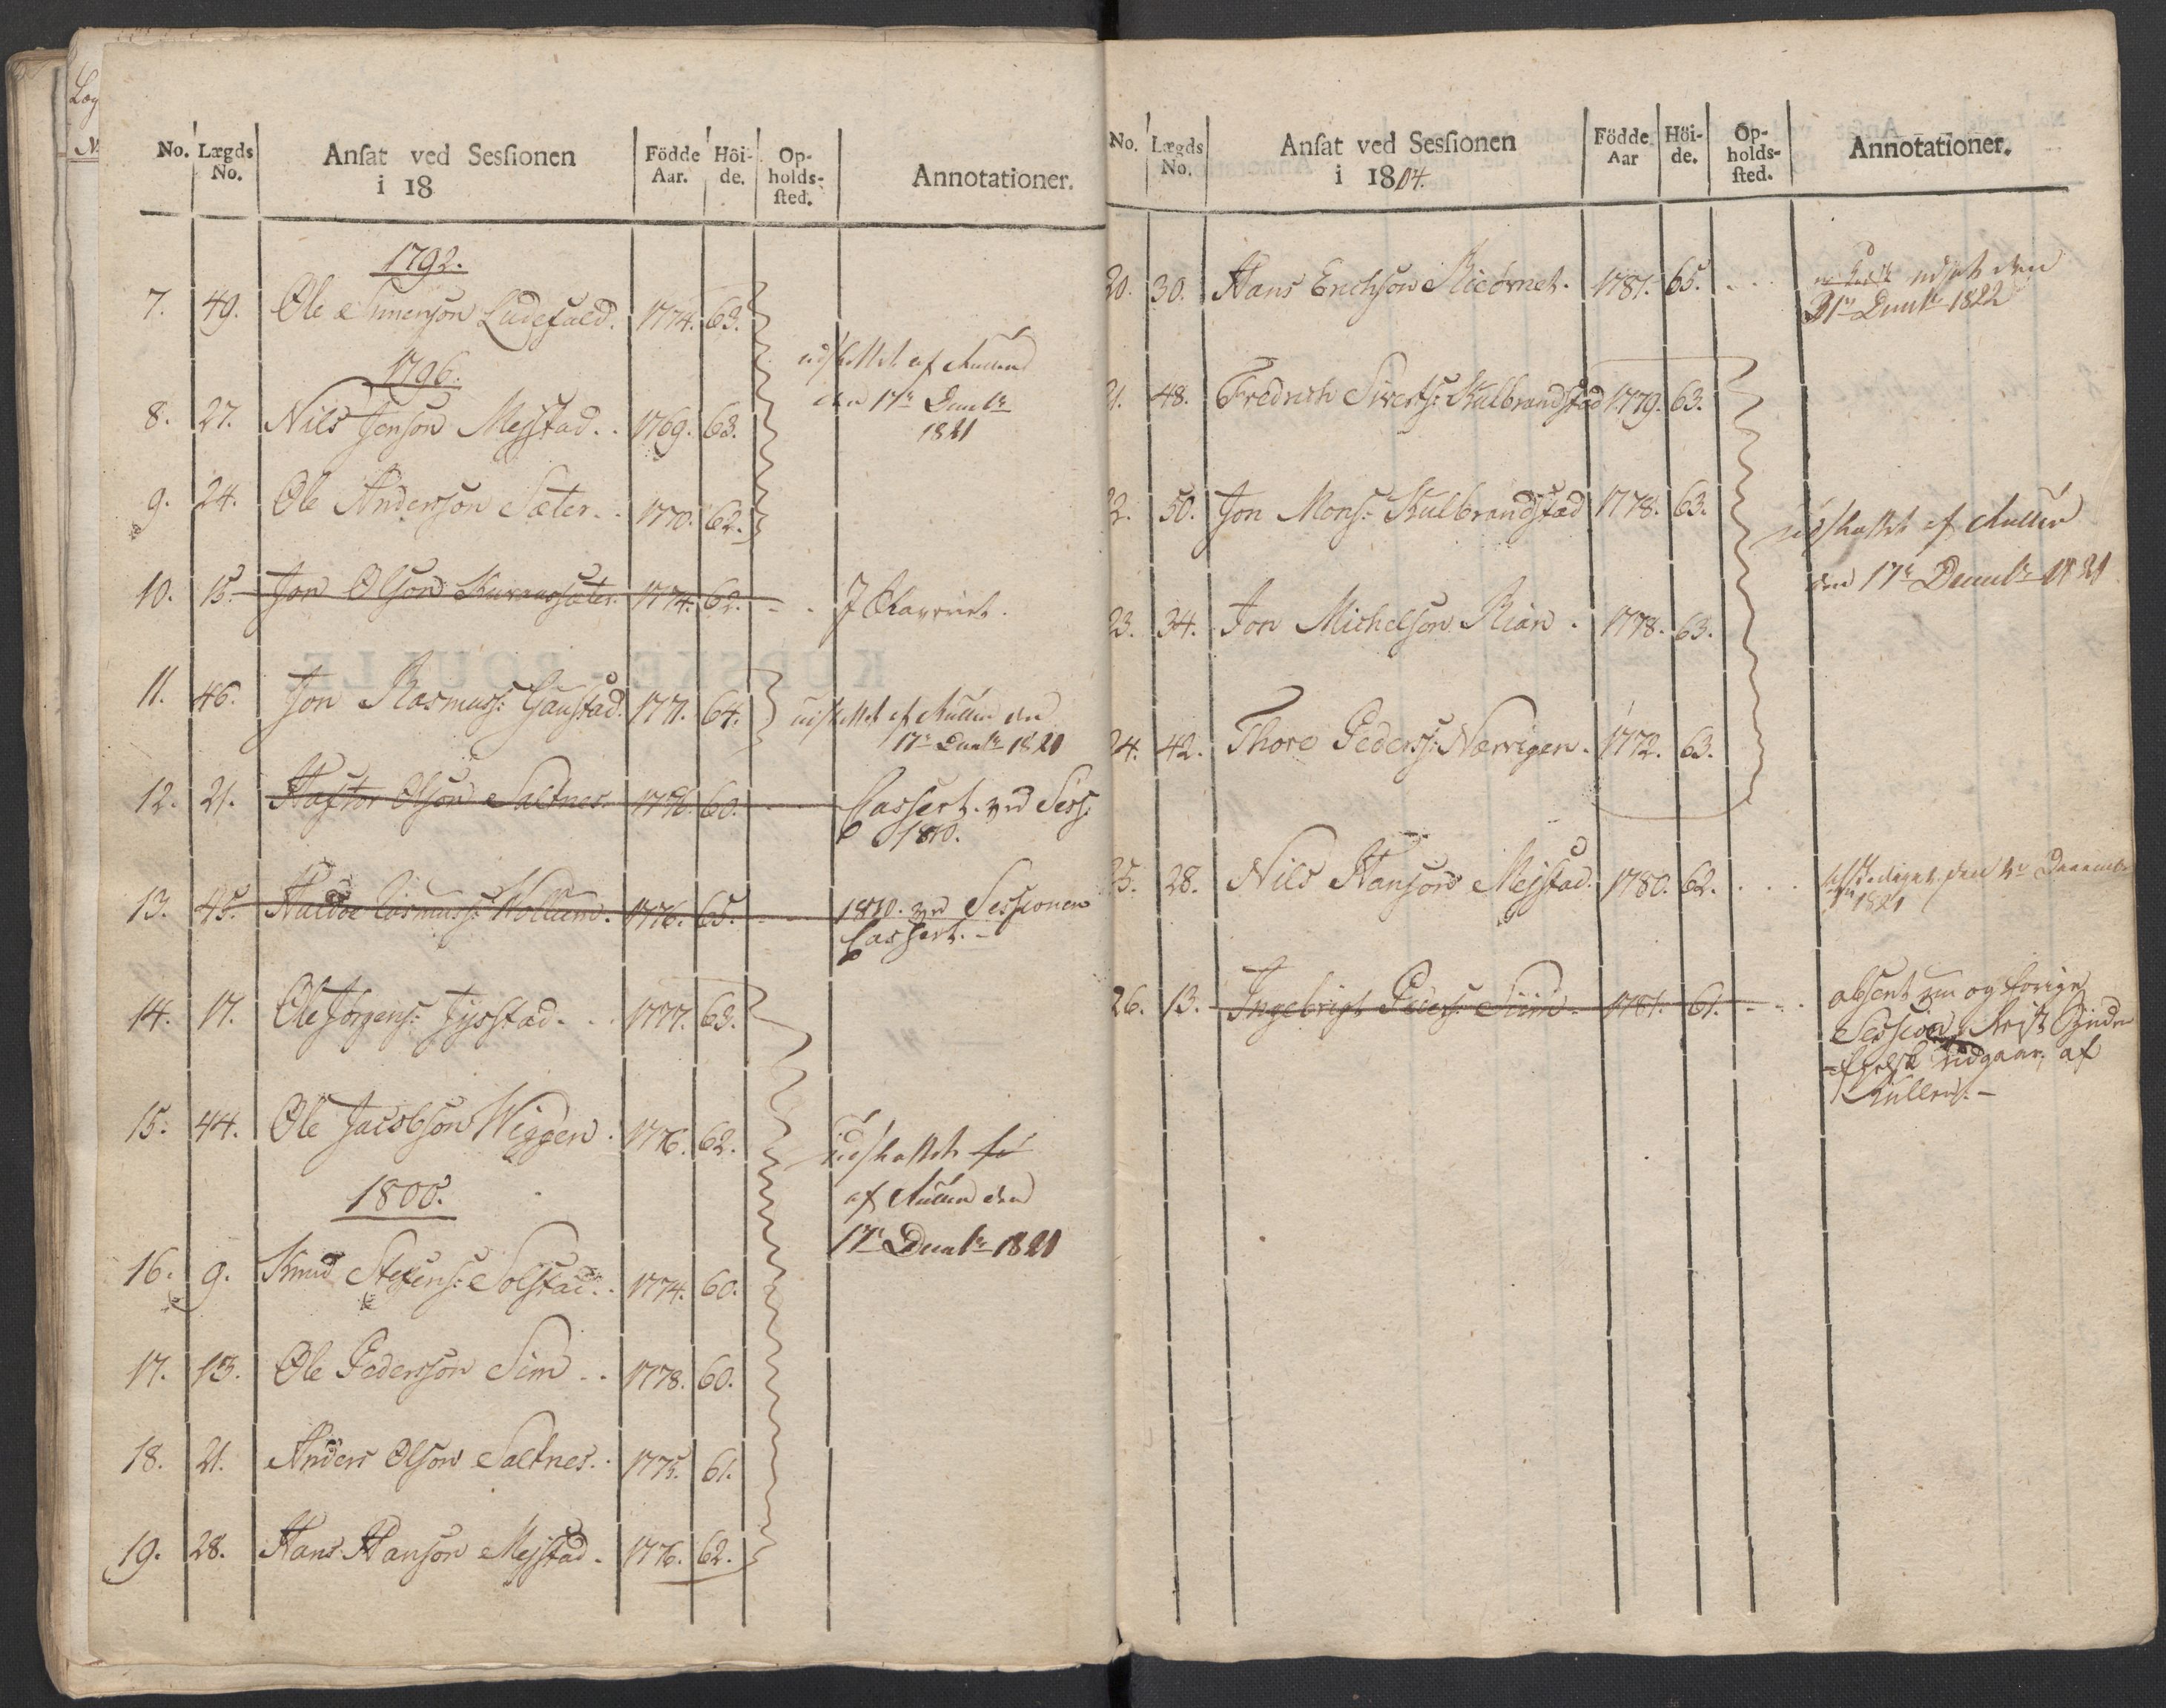 No. Lægds No. Ansat ved Sessionen i 18 Födde Aar. Höide. Opholdssted. Annotationer.
1792.
7. 49. Ole Simenson Ludefald. 1774. 63.
1796.
udskattet af Rullen
den 17de Decembr
1821
8. 27. Nils Jenson Mejstad. . 1769. 63.
9. 24. Ole Anderson Sæter. . 1770. 62.
10. 15. Jon Olson 1774. 62. - .
11. 46. Jon Rasmuss: Gaustad. 1771. 64. udskattet af Rullen den
17de Decbr 1821
12. 21. Haftor Olson Saltnes. 1776. 60. Cassert. ved Sess:
1810.
13. 45. Haldoe Rasmuss: Wollum. 1776. 65. 1810. ved Sessionen
Cassert. -
14. 17. Ole Jörgens: Jysstad. . . 1777. 63.
15. 44. Ole Jacobson Wiggen. 1776. 62. udskattet
af Rullen den
17de Decembr 1821
1800.
16. 9. Knud Stefens: Solstad. . 1774. 60.
17. 13. Ole Pederson Sim . . 1778. 60.
18. 21. Anders Olson Saltnes. . 1775. 61.
19. 28. Hans Hanson Mejstad. 1776. 62.
No. Lægds No. Ansat ved Sessionen i 1804. Födde Aar Höide. Opholdssted. Annotationer.
20. 30. Hans Erichson 1781. 65. . . . udsat den
31te Decembr 1822
21. 48. Fredrich Siverts: Kulbrandstad 1779. 63.
22. 50. Jon Mons: Kulbrandstad 1778. 63. udskattet af Rullen
den 17de Decembr 1821
23. 34. Jon Michelson Rian. 1778. 63.
24. 42. Thore Peders: Nerrigen. 1772. 63.
25. 28. Nils Hanson Mejstad. 1780. 62. . . . den Decembr
1821
26. 13. Ingebrigt Peders: Siim. 1781. 61. - - . absent nu og forige
Session,
udgaar af
Rullen. -